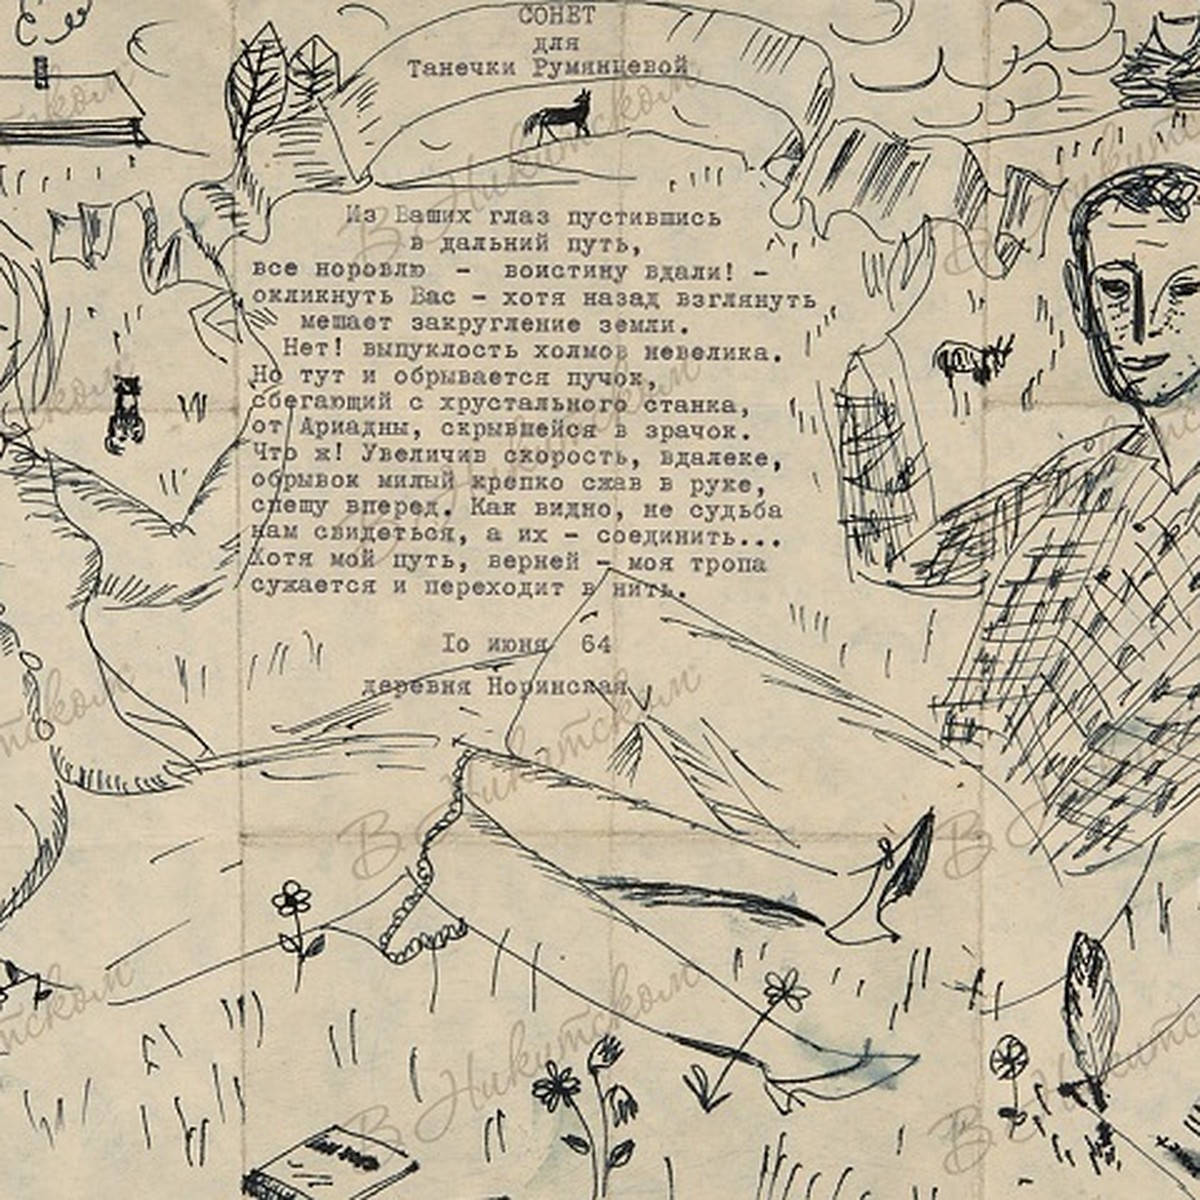 СОНЕТ
для
Танечки Румянцевой
Из Ваших глаз пустившись
в дальний путь,
все норовлю - воистину вдали! -
окликнуть Вас - хотя назад взглянуть
мешает закругление земли.
Нет! выпуклость холмов невелика.
Но тут и обрывается пучок,
сбегающий с хрустального станка,
от Ариадны, скрывшейся в зрачок.
Что ж! Увеличив скорость, вдалеке,
обрывок милый крепко сжав в руке,
спешу вперед. Как видно, не судьба
нам свидеться, а их - соединить...
Хотя мой путь, верней - моя тропа
сужается и переходит в нить.
Iо июня 64
деревня Норинская
В Никитском